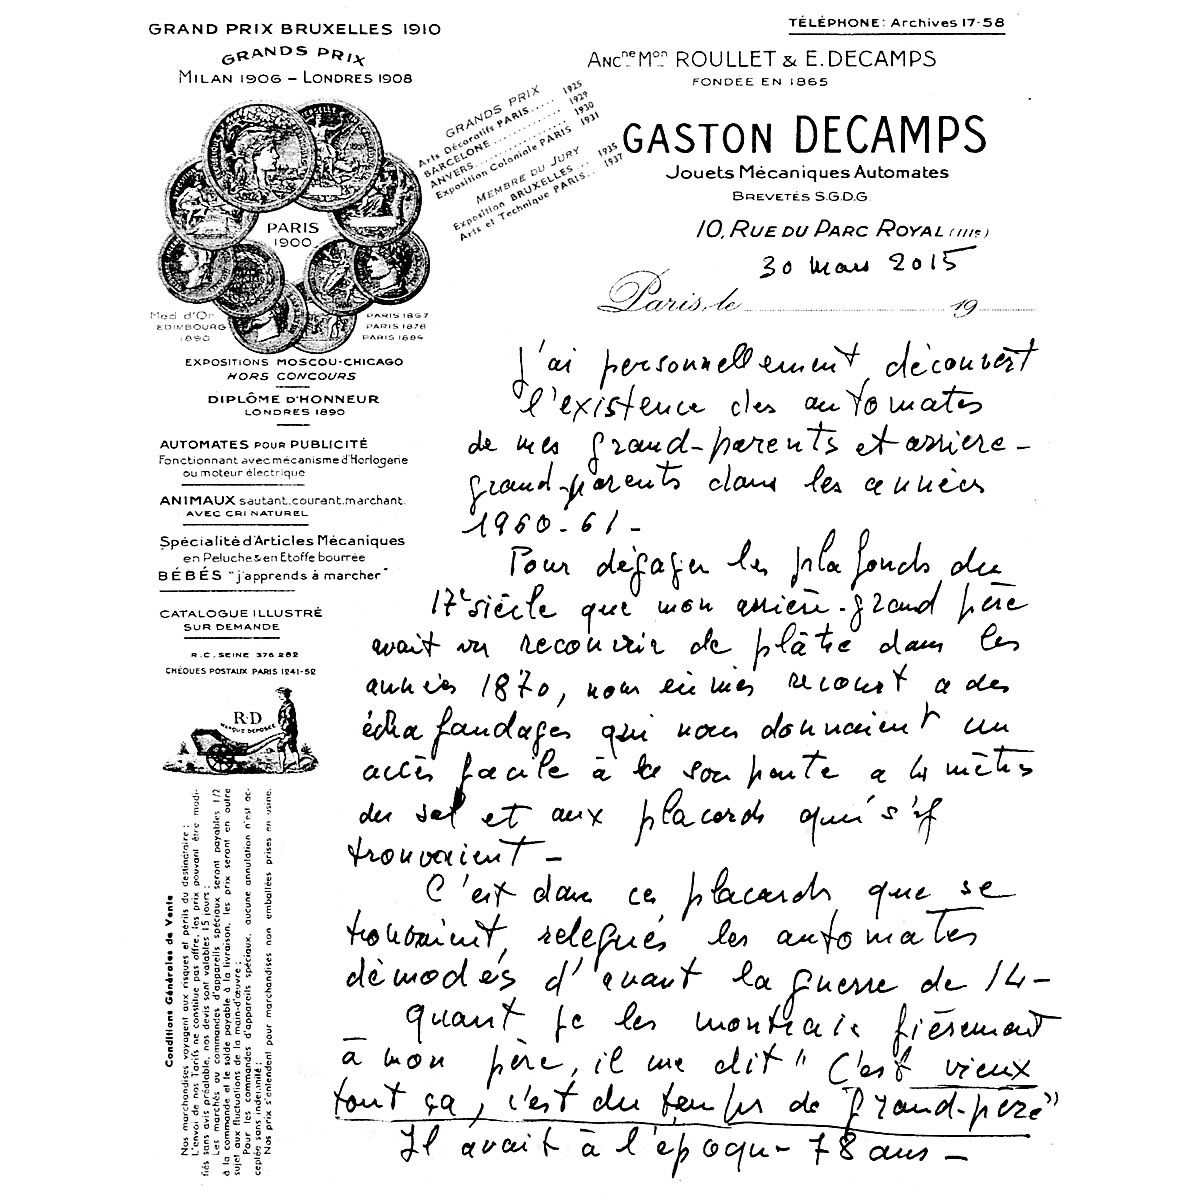 GRAND PRIX BRUXELLES 1910
GRANDS PRIX
MILAN 1906 – LONDRES 1908
PARIS
1900
Med d'Or
EDIMBOURG
1890
PARIS 1867
PARIS 1878
PARIS 1889
EXPOSITIONS MOSCOU-CHICAGO
HORS CONCOURS
DIPLÔME D'HONNEUR
LONDRES 1890
AUTOMATES POUR PUBLICITÉ
Fonctionnant avec mécanisme d'Horlogerie
ou moteur électrique
ANIMAUX sautant.courant.marchant.
AVEC CRI NATUREL
Spécialité d'Articles Mécaniques
en Peluche & en Etoffe bourrée
BÉBÉS "j'apprends à marcher"
CATALOGUE ILLUSTRÉ
SUR DEMANDE
R.C. SEINE 376 282
CHÈQUES POSTAUX PARIS 1241-52
R.D
MARQUE DEPOSÉE
Conditions Générales de Vente
Nos marchandises voyagent aux risques et périls du destinataire ;
L'envoi de nos Tarifs ne constitue pas offre, les prix pouvant être modi-
fiés sans avis préalable, nos devis sont valables 15 jours ;
Les marchés ou commandes d'appareils spéciaux seront payables 1/2
à la commande et le solde payable à la livraison, les prix seront en outre
sujet aux fluctuations de la main-d'œuvre ;
Pour les commandes d'appareils spéciaux, aucune annulation n'est ac-
ceptée sans indemnité ;
Nos prix s'entendent pour marchandises non emballées prises en usine.
GRANDS PRIX
Arts Décoratifs PARIS..... 1925
BARCELONE............... 1929
ANVERS.................. 1930
Exposition Coloniale PARIS 1931
MEMBRE DU JURY
Exposition BRUXELLES... 1935
Arts et Technique PARIS.. 1937
TÉLÉPHONE: Archives 17-58
ANCne Mon ROULLET & E. DECAMPS
FONDÉE EN 1865
GASTON DECAMPS
Jouets Mécaniques Automates
BREVETÉS S.G.D.G.
10, RUE DU PARC ROYAL (IIIe)
30 mars 2015
Paris, le 19
J'ai personnellement découvert
l'existence des automates
de mes grand-parents et arrière-
grand-parents dans les années
1960-61-
Pour dégager les plafonds du
17e siècle que mon arrière-grand père
avait vu recouvrir de plâtre dans les
années 1870, nous eûmes recourt a des
échafaudages qui nous donnaient un
accès facile à la soupente a 4 mètres
du sol et aux placards qui s'y
trouvaient –
C'est dans ces placards que se
trouvaient, relegués les automates
démodés d'avant la guerre de 14-
quant je les montrais fièrement
à mon père, il me dit " C'est vieux
tout ça, c'est du temps de grand-père"
Il avait à l'époque 78 ans –